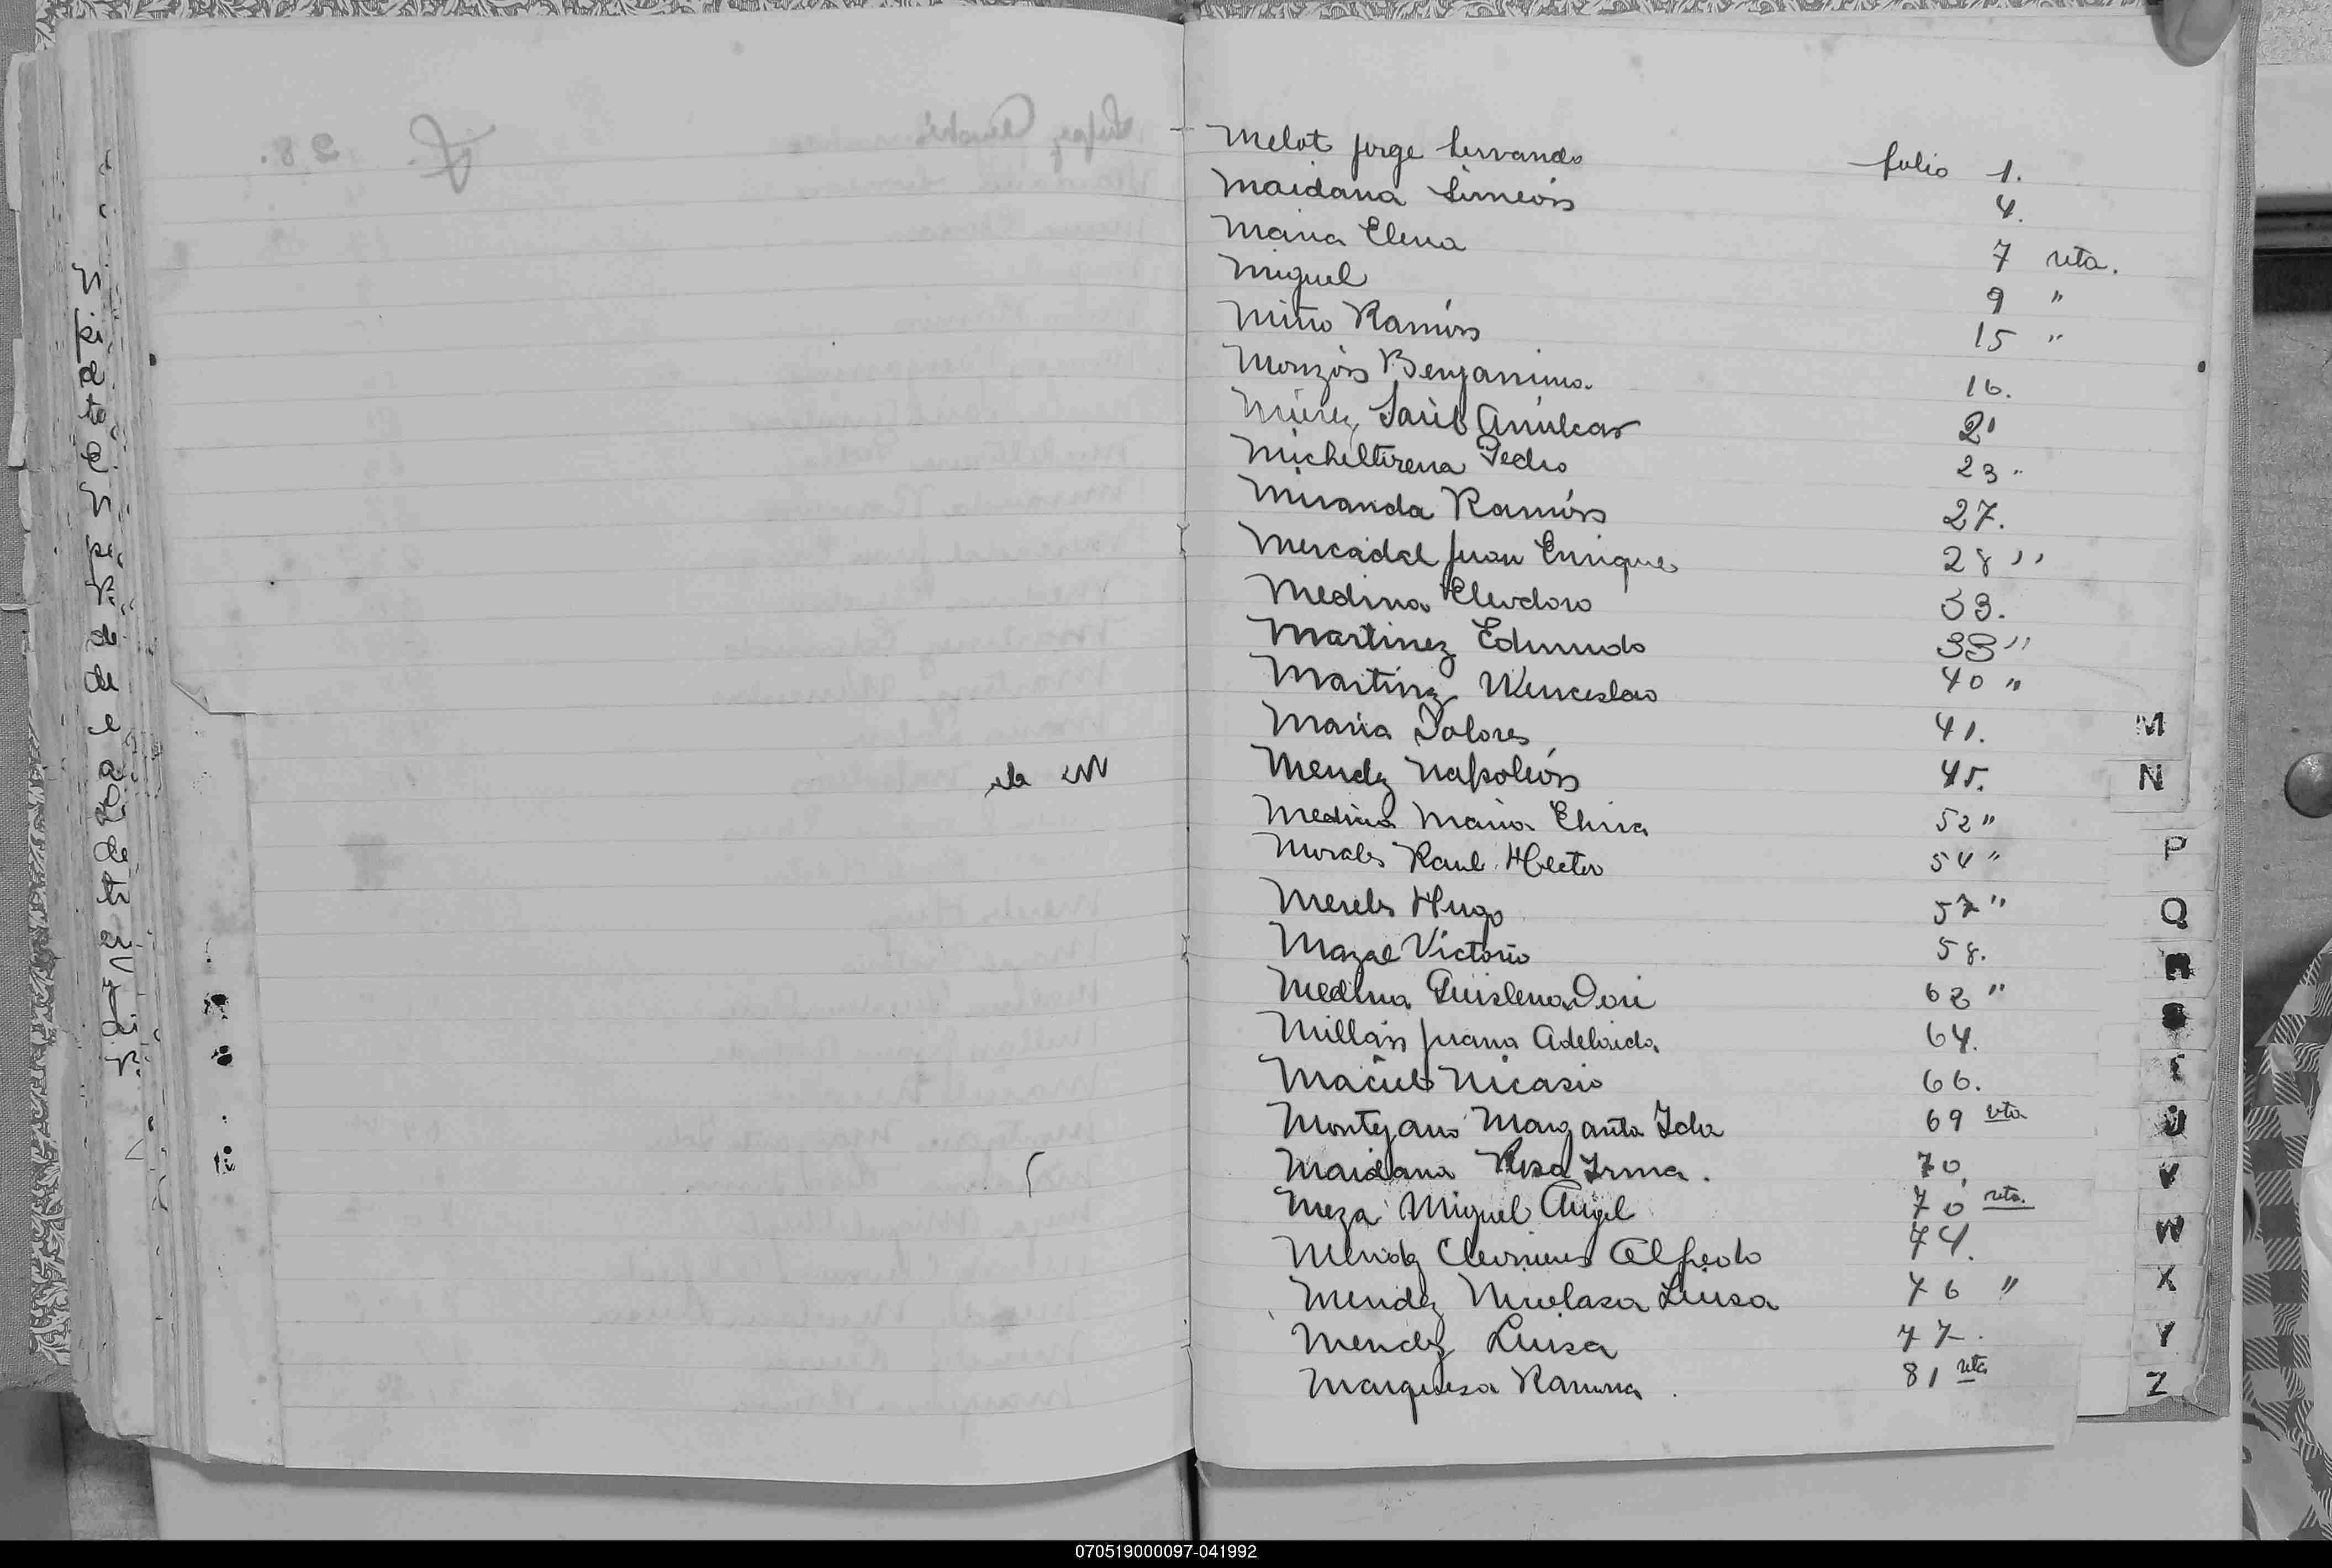 Melot Jorge Servando folio 1.
Maidana Simeón 4.
Maria Elena 7 vta.
Miguel 9 "
Miño Ramón 15 "
Monzón Benjamina. 16.
Saúl Amilcar 21
Micheltorena Pedro 23 "
Miranda Ramón 27.
Mercadal Juan Enrique 28 "
Medina Eleodoro 33.
Martinez Edmundo 33 "
Martinez Wenceslao 40 "
Maria Dolores 41.
Mendez Napoleón 45.
Medina Maria Elvira 52 "
Morales Raul Hector 54 "
Mereles Hugo 57 "
Mazal Victorio 58.
Medina 62 "
Millán Juana Adelaida 64.
Maciel Nicasio 66.
Montejano Margarita Ida 69 vta
Maidana Rosa Irma. 70.
Meza Miguel Angel 70 vta.
Mendez Alfredo 74.
Mendez Nicolasa Luisa 76 "
Mendez Luisa 77.
Marquesa Ramona 81 vta
M
N
P
Q
R
S
T
U
V
W
X
Y
Z
070519000097-041992